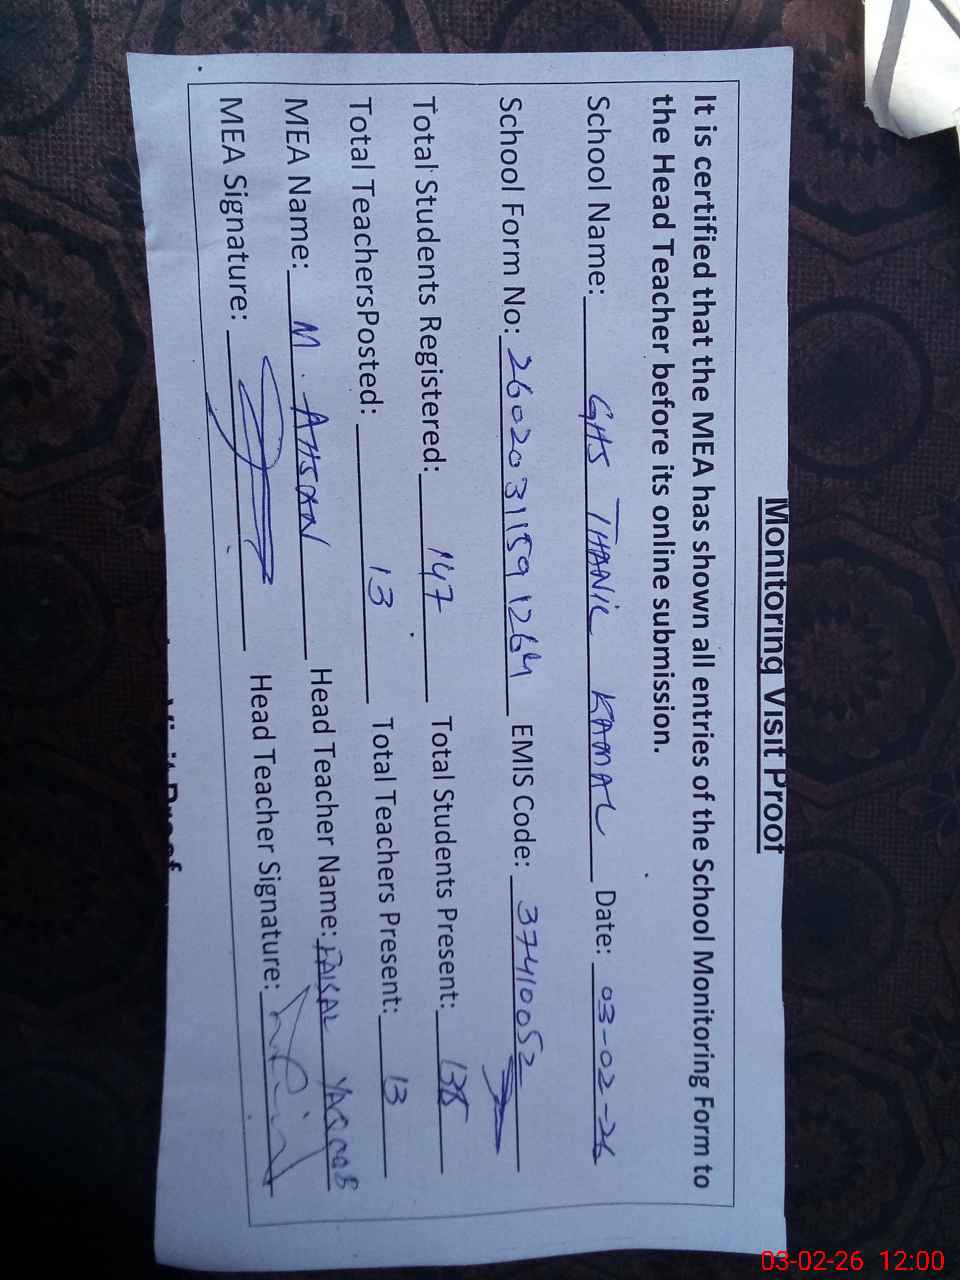 Monitoring Visit Proof
It is certified that the MEA has shown all entries of the School Monitoring Form to
the Head Teacher before its online submission.
School Name: GHS THANIL KAMAL Date: 03-02-26
School Form No: 26020311591264 EMIS Code: 37410052
Total Students Registered: 147 Total Students Present: 138
Total TeachersPosted: 13 Total Teachers Present: 13
MEA Name: M. AHSAN Head Teacher Name: FAISAL YAQOOB
MEA Signature: Head Teacher Signature:
03-02-26 12:00